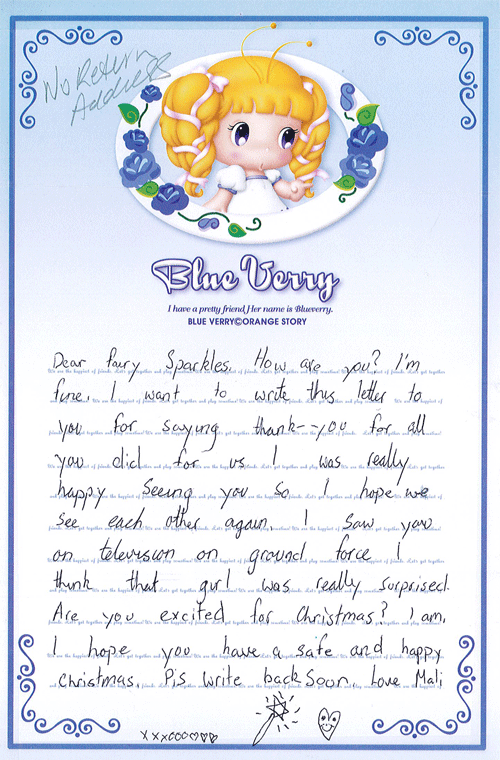 No Return
Address
Blue Verry
I have a pretty friend Her name is Blueverry.
BLUE VERRY©ORANGE STORY
Dear fairy Sparkles. How are you? I'm
fine. I want to write this letter to
you for saying thank-you for all
you did for us I was really
happy seeing you so I hope we
see each other again. I saw you
on television on ground force I
think that girl was really surprised.
Are you excited for Christmas? I am.
I hope you have a safe and happy
christmas. P.s write back soon. Love Mali
xxxooo